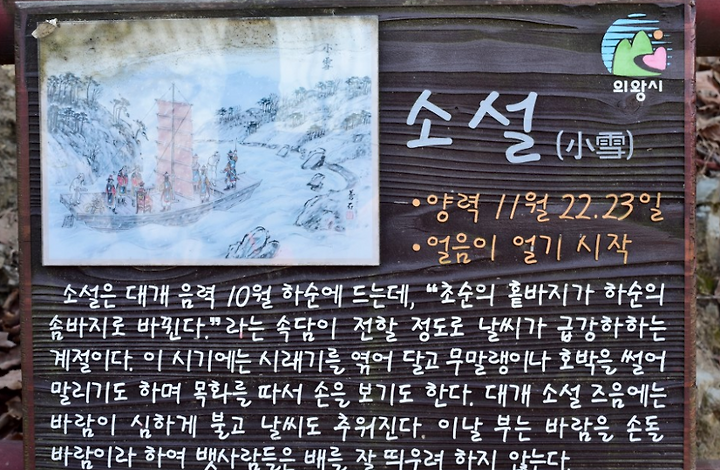 小雪
의왕시
소설 (小雪)
·양력 11월 22.23일
·얼음이 얼기 시작
소설은 대개 음력 10월 하순에 드는데, “초순의 홑바지가 하순의
솜바지로 바뀐다.”라는 속담이 전할 정도로 날씨가 급강하하는
계절이다. 이 시기에는 시래기를 엮어 달고 무말랭이나 호박을 썰어
말리기도 하며 목화를 따서 손을 보기도 한다. 대개 소설 즈음에는
바람이 심하게 불고 날씨도 추워진다. 이날 부는 바람을 손돌
바람이라 하여 뱃사람들은 배를 잘 띄우려 하지 않는다